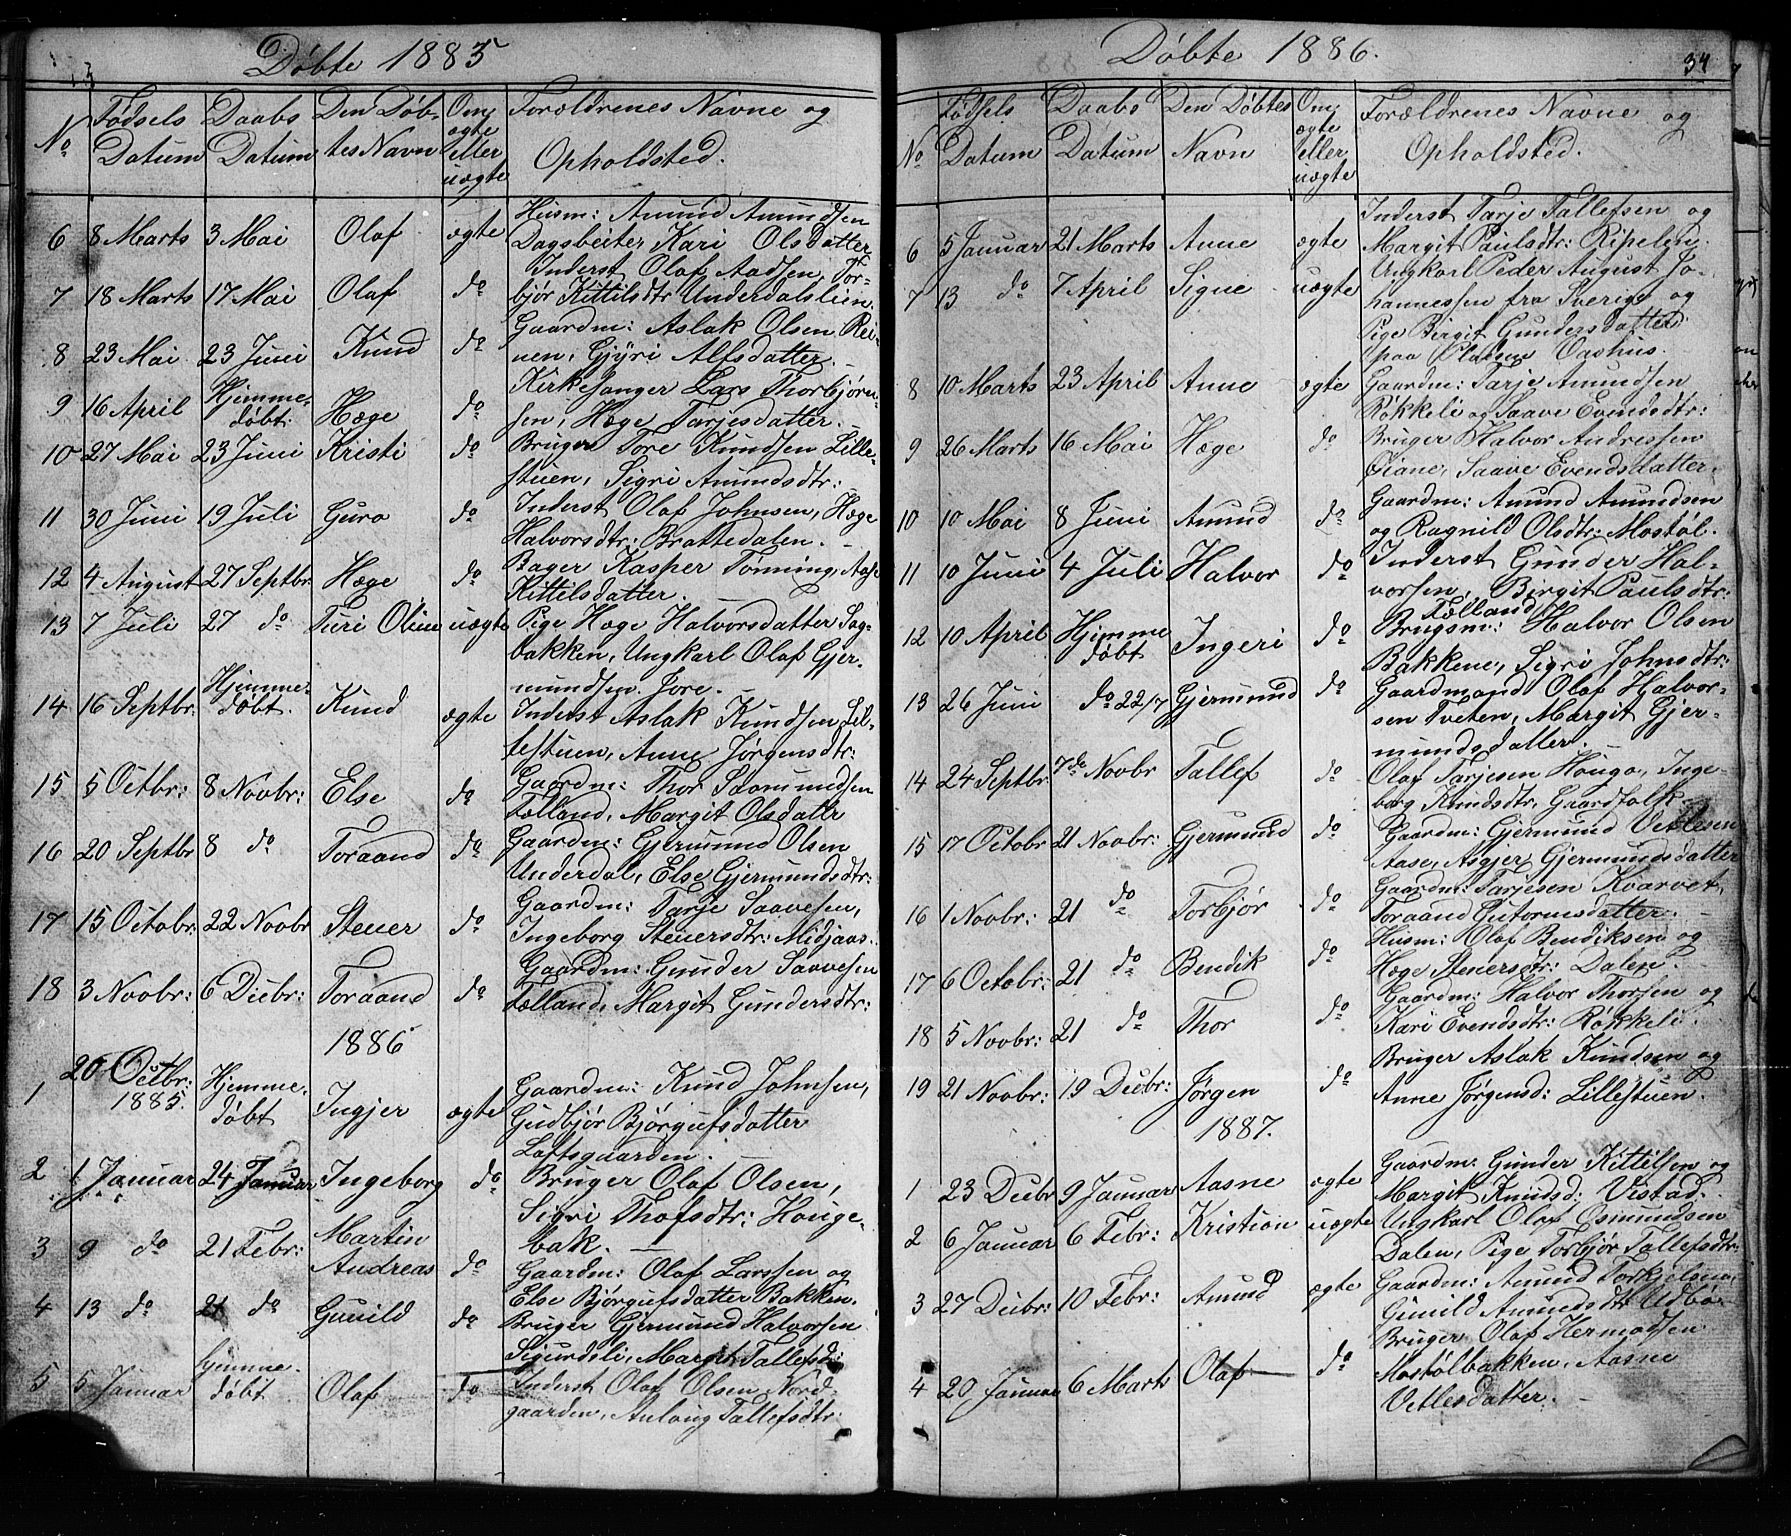 Døbte 1885
No
Fødsels Datum
Daabs Datum
Den Døbtes Navn
Om ægte eller uægte
Forældrenes Navne og Opholdsted.
6 8 Marts 3 Mai Olaf ægte Husm: Amund Amundsen
Dagsbeiter Kari Olsdatter
7 18 Marts 17 Mai Olaf do Inderst Olaf Aadsen, Tor-
bjør Kittilsdtr Underdalslien
8 23 Mai 23 Juni Knud do Gaardm: Aslak Olsen Rei-
nen, Gjyri Alfsdatter.
9 16 April Hjemmedøbt. Hæge do Kirkesanger Lars Thorbjørn-
sen, Hæge Tarjesdatter.
10 27 Mai 23 Juni Kristi do Bruger Tore Knudsen Lille-
stuen, Sigri Amundsdtr:
11 30 Juni 19 Juli Guro do Inderst Olaf Johnsen, Hæge
Halvorsdtr: Brattedalen.
12 4 August 27 Septbr: Hæge do Bager Kasper Tonning, Aase
Kittilsdatter.
13 7 Juli 27 do Turi Oline uægte Pige Hæge Halvorsdatter Sag-
bakken, Ungkarl Olaf Gjer-
mundsen Jore.
14 16 Septbr: Hjemmedøbt. Knud ægte Inderst Aslak Knudsen Lil-
lestuen, Anne Jørgensdtr:
15 5 Octbr: 8 Novbr: Else do Gaardm: Thor Saamundsen
Tælland, Margit Olsdattr
16 20 Septbr 8 do Toraand do Gaardm: Gjermund Olsen
Underdal, Else Gjermundsdtr:
17 15 Octobr: 22 Novbr Stener do Gaardm: Tarje Saavesen,
Ingeborg Stenersdtr: Midjaas.
18 3 Novbr: 6 Decbr: Toraand do Gaardm: Gunder Saavesen
Tælland, Margit Gundersdtr:
1886
1 20 Octbr: 1885. Hjemmedøbt Ingjer ægte Gaardm: Knud Johnsen,
Gudbjør Bjørgufsdatter
Loftsgaarden.
2 1 Januar 24 Januar Ingeborg do Bruger Olaf Olsen,
Sigri Thofsdtr: Houge-
bak.
3 9 do 21 Febr: Martin Andreas do Gaardm: Olaf Larssen og
Else Bjørgufsdatter Bakken.
4 13 do 21 do Gunild do Bruger Gjermund Halvorsen
Sigurdsli, Margit Tallefsdtr:
5 5 Januar Hjemmedøbt Olaf do Inderst Olaf Olsen Nord-
gaarden, Anlaug Tallefsdtr:
Døbte 1886.
34
No
Fødsels Datum
Daabs Datum
Den Døbtes Navn
Om ægte eller uægte
Forældrenes Navne og Opholdsted.
6 5 Januar 21 Marts Anne ægte Inderst Tarje Tallefsen og
Margit Paulsdtr: Ripelen.
7 13 do 7 April Signe uægte Ungkarl Peder August Jo-
hannessen fra Sverige og
Pige Birgit Gundersdatter
paa Pladsen Vashus.
8 10 Marts 23 April Anne ægte Gaardm: Tarje Amundsen
Røkkeli og Saave Evendsdtr:
9 26 Marts 16 Mai Hæge do Bruger Halvor Andressen
Øiane, Saave Evendsdatter.
10 10 Mai 8 Juni Amund do Gaardm: Amund Amundsen
og Ragnild Olsdtr: Mostøl.
11 10 Juni 4 Juli Halvor do Inderst Gunder Hal-
vorsen, Birgit Paulsdtr:
Tælland
12 10 April Hjemmedøbt Ingeri do Brugsm: Halvor Olsen
Bakkene, Sigri Johnsdtr:
13 26 Juni do 22/7 Gjermund do Gaardmand Olaf Halvor-
sen Tveten, Margit Gjer-
mundsdatter.
14 24 Septbr: 7de Novbr Tallef do Olaf Tarjesen Hougo, Inge-
borg Knudsdtr, Gaardfolk.
15 17 Octobr 21 Novbr: Gjermund do Gaardm: Gjermund Vetlesen
Aase, Asgjer Gjermundsdatter
16 1 Novbr: 21 do Torbjør do Gaardm: Tarjesen Kvarvet,
Toraand Gutormsdatter.
17 6 Octobr: 21 do Bendik do Husm: Olaf Bendiksen og
Hæge Stenersdtr: Dalen.
18 5 Novbr: 21 do Thor do Gaardm: Halvor Thorsen og
Kari Evendsdtr: Røkkeli.
19 21 Novbr: 19 Decbr: Jørgen do Bruger Aslak Knudsen og
Anne Jørgensd: Lillestuen.
1887.
1 23 Decbr 9 Januar Aasne ægte Gaardm: Gunder Kittilsen og
Margit Knudsd: Vistad.
2 6 Januar 6 Febr: Kristian uægte Ungkarl Olaf Osmundsen
Dalen, Pige Torbjør Tallefsdtr:
3 27 Decbr: 10 Febr: Amund ægte Gaardm: Amund Torkjelsen,
Gunild Amundsdtr Udbø
4 20 Januar 6 Marts Olaf do Bruger Olaf Hermodsen
Mostølbakken, Aasne
Vetlesdatter.